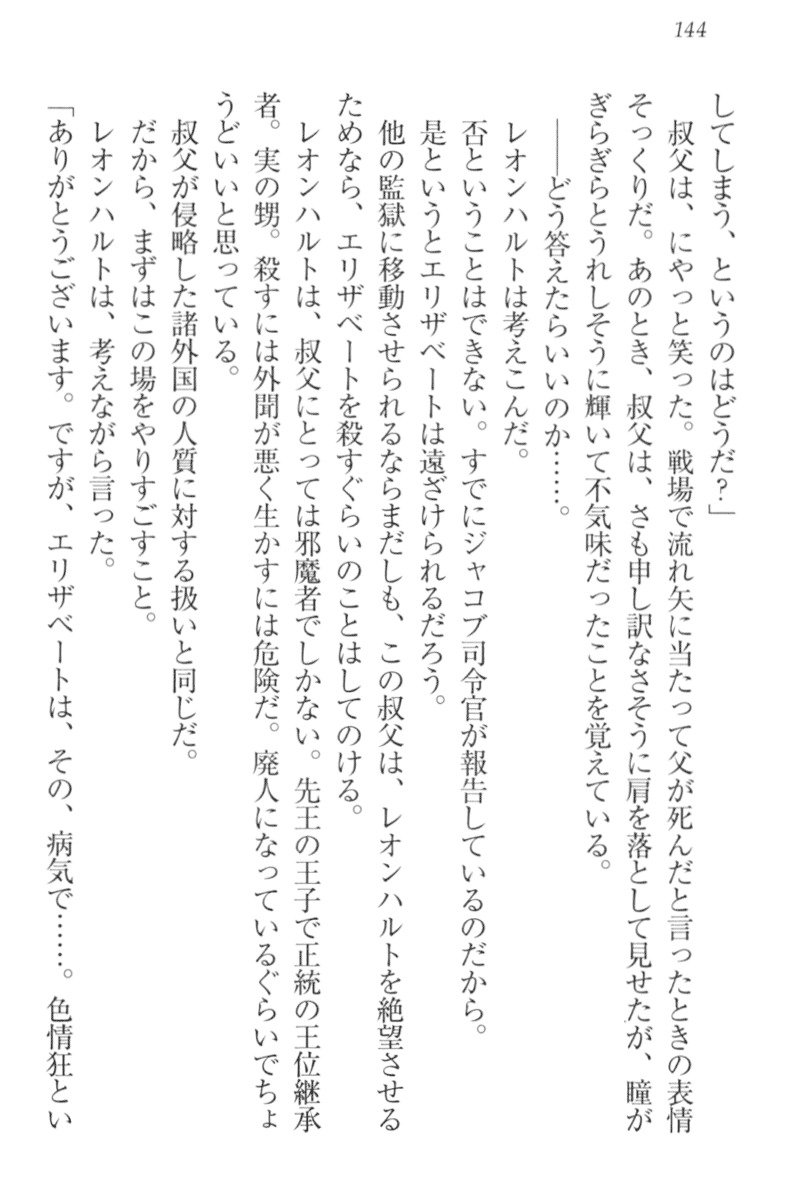 144
してしまう、というのはどうだ？」
　叔父は、にやっと笑った。戦場で流れ矢に当たって父が死んだと言ったときの表情
そっくりだ。あのとき、叔父は、さも申し訳なさそうに肩を落として見せたが、瞳が
ぎらぎらとうれしそうに輝いて不気味だったことを覚えている。
　――どう答えたらいいのか……。
　レオンハルトは考えこんだ。
　否ということはできない。すでにジャコブ司令官が報告しているのだから。
　是というとエリザベートは遠ざけられるだろう。
　他の監獄に移動させられるならまだしも、この叔父は、レオンハルトを絶望させる
ためなら、エリザベートを殺すぐらいのことはしてのける。
　レオンハルトは、叔父にとっては邪魔者でしかない。先王の王子で正統の王位継承
者。実の甥。殺すには外聞が悪く生かすには危険だ。廃人になっているぐらいでちょ
うどいいと思っている。
　叔父が侵略した諸外国の人質に対する扱いと同じだ。
　だから、まずはこの場をやりすごすこと。
　レオンハルトは、考えながら言った。
「ありがとうございます。ですが、エリザベートは、その、病気で……。色情狂とい